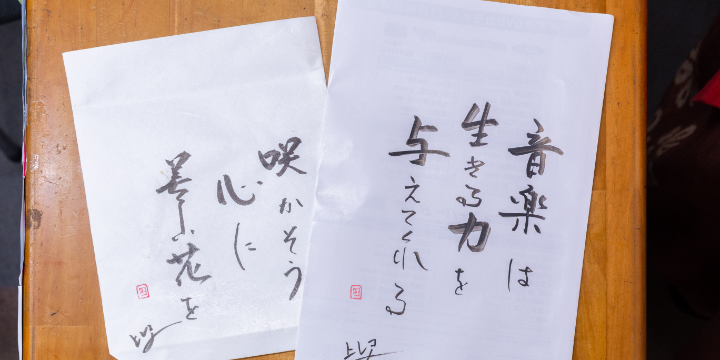 音楽は
生きる力を
与えてくれる
咲かそう
心に
美しい花を